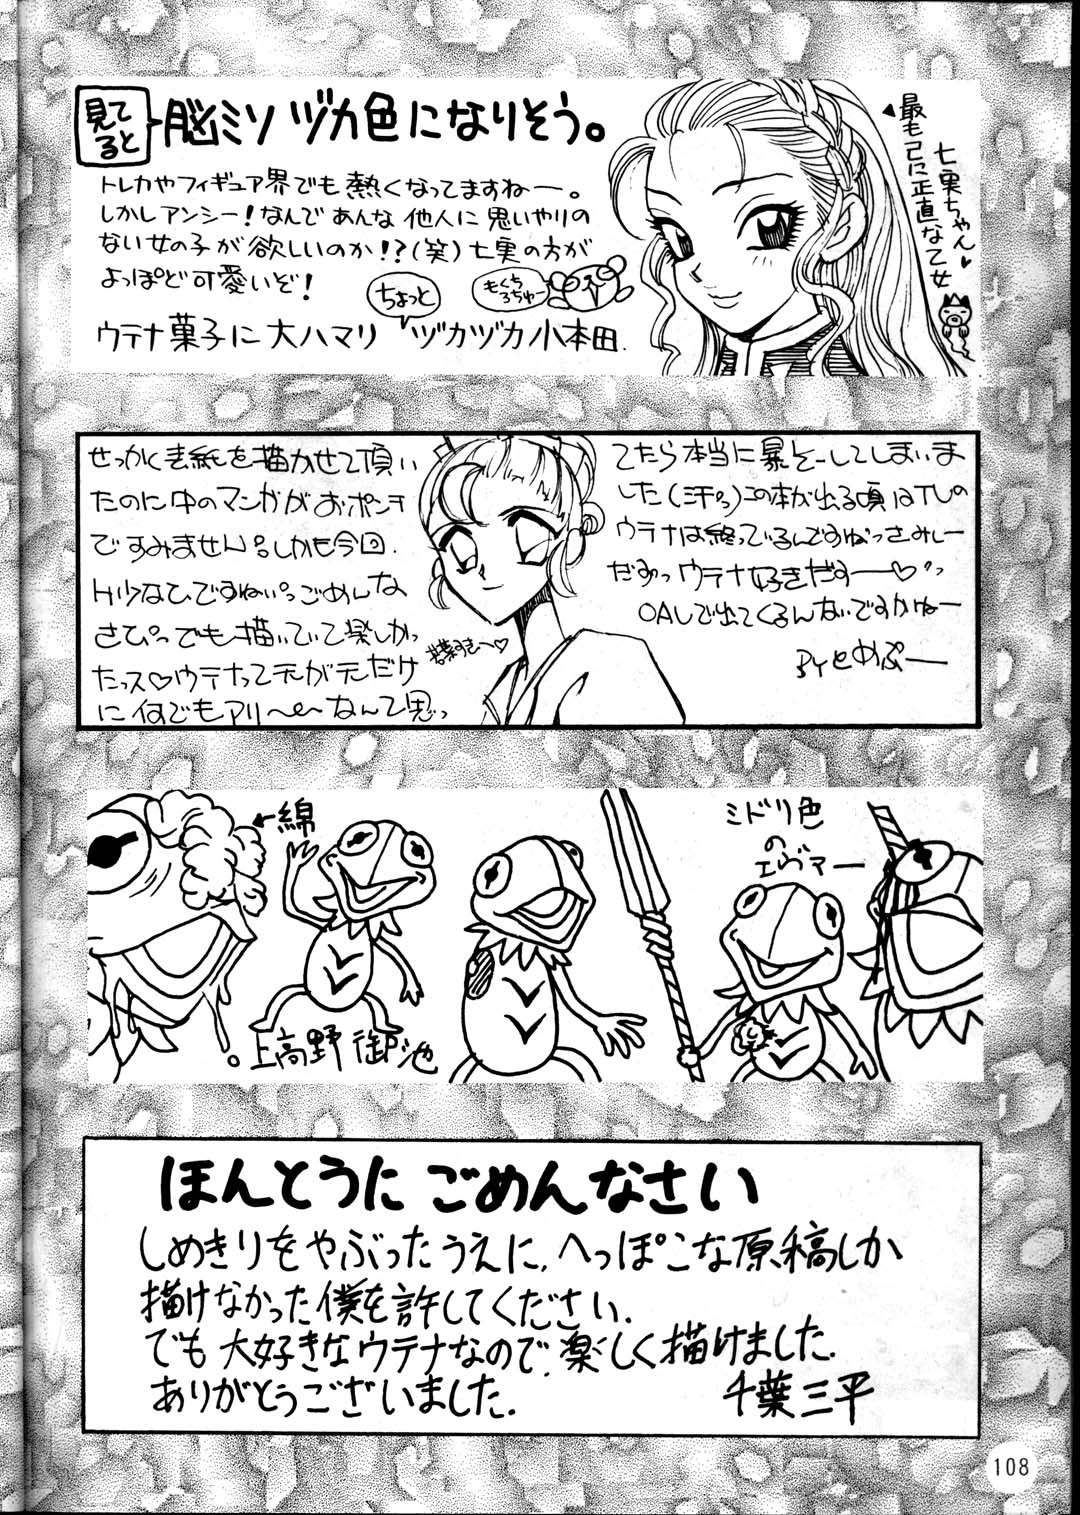 見てると 脳ミソ ヅカ色になりそう。
トレカやフィギュア界でも熱くなってますねー。
しかしアンシー!なんであんな他人に思いやりの
ない女の子が欲しいのか!?(笑)七実の方が
よっぽど可愛いぞ!
ちょっと
もくちろちゅー
ウテナ菓子に大ハマリ ヅカヅカ小本田.
七実ちゃん♥
最も己に正直な乙女
せっかく表紙を描かせて頂い
たのに中のマンガがおポンチ
ですみません。しかも今回.
H少なひですねい。ごめんな
さひっでも描いていて楽しかっ
たっス♡ウテナって元が元だけ
に何でもアリ〜〜なんて思っ
若葉すきー♡
てたら本当に暴走してしまいま
した(汗っ)この本が出る頃はTVの
ウテナは終っているんですねっさみしー
だみっウテナ好きだすー♡っ
OAVで出てくるんないですかねー
BYとめぷー
←綿
上高野御池
ミドリ色
の
エヴァー
ほんとうに ごめんなさい
しめきりをやぶったうえに、へっぽこな原稿しか
描けなかった僕を許してください.
でも大好きなウテナなので、楽しく描けました.
ありがとうございました.
千葉三平
108